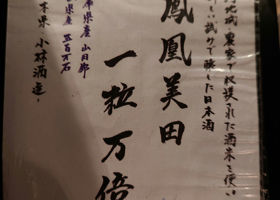 地域 農家で収穫された酒米を使い
しい試みで醸した日本酒
鳳凰美田
一粒万倍
庫県産 山田錦
県産 五百万石
木県 小林酒造